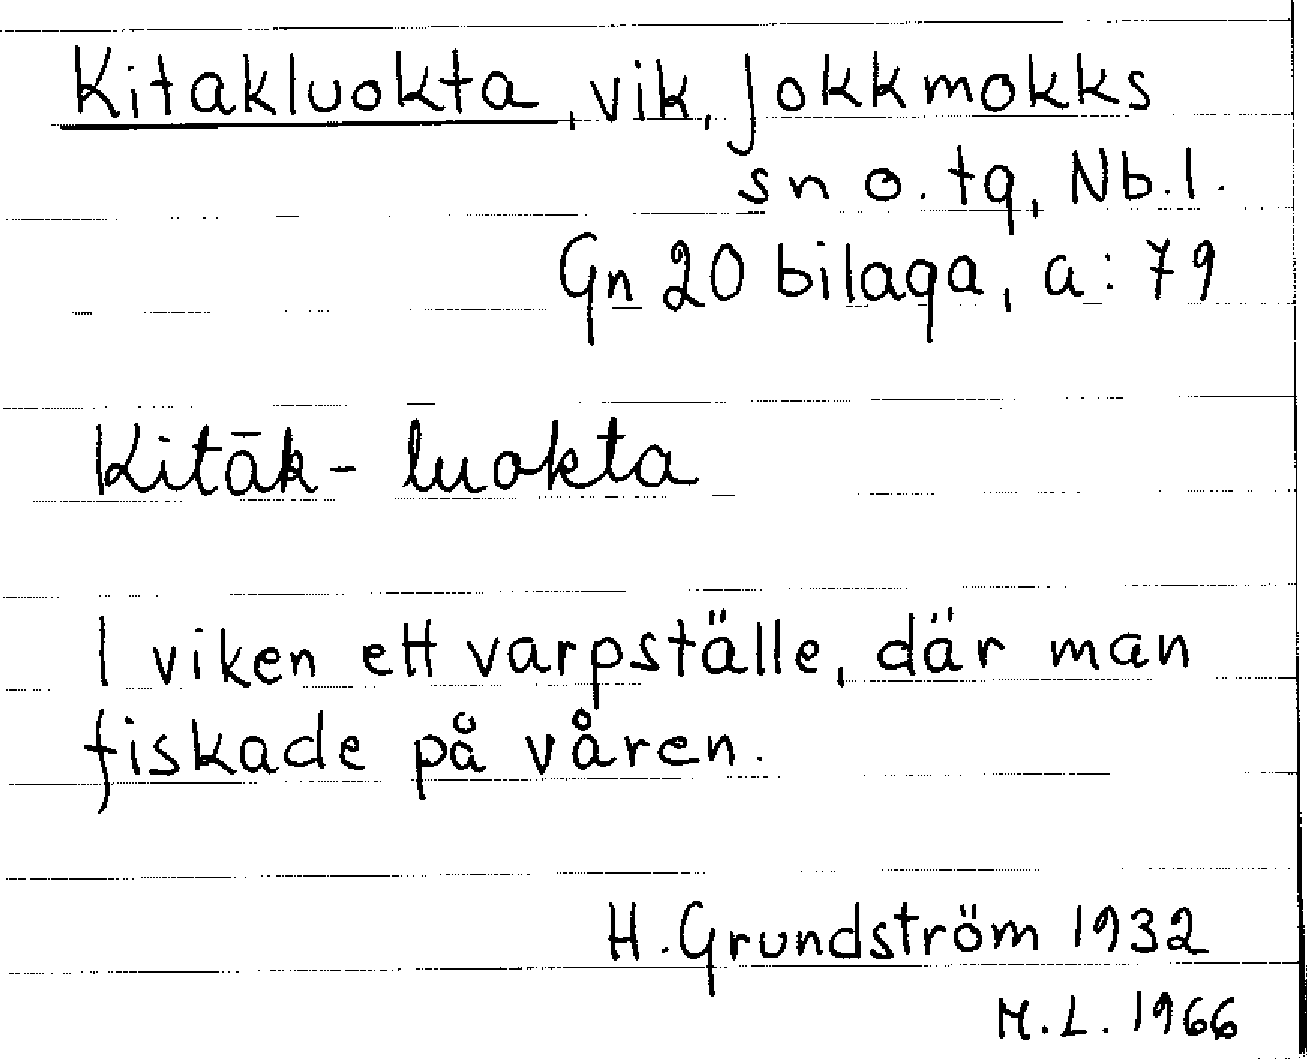 Kitakluokta, vik, Jokkmokks
sn o. tg, Nb.l.
Gn 20 bilaga, a: 79
Kitāk- luokta
I viken ett varpställe, där man
fiskade på våren.
H. Grundström 1932
M.L. 1966